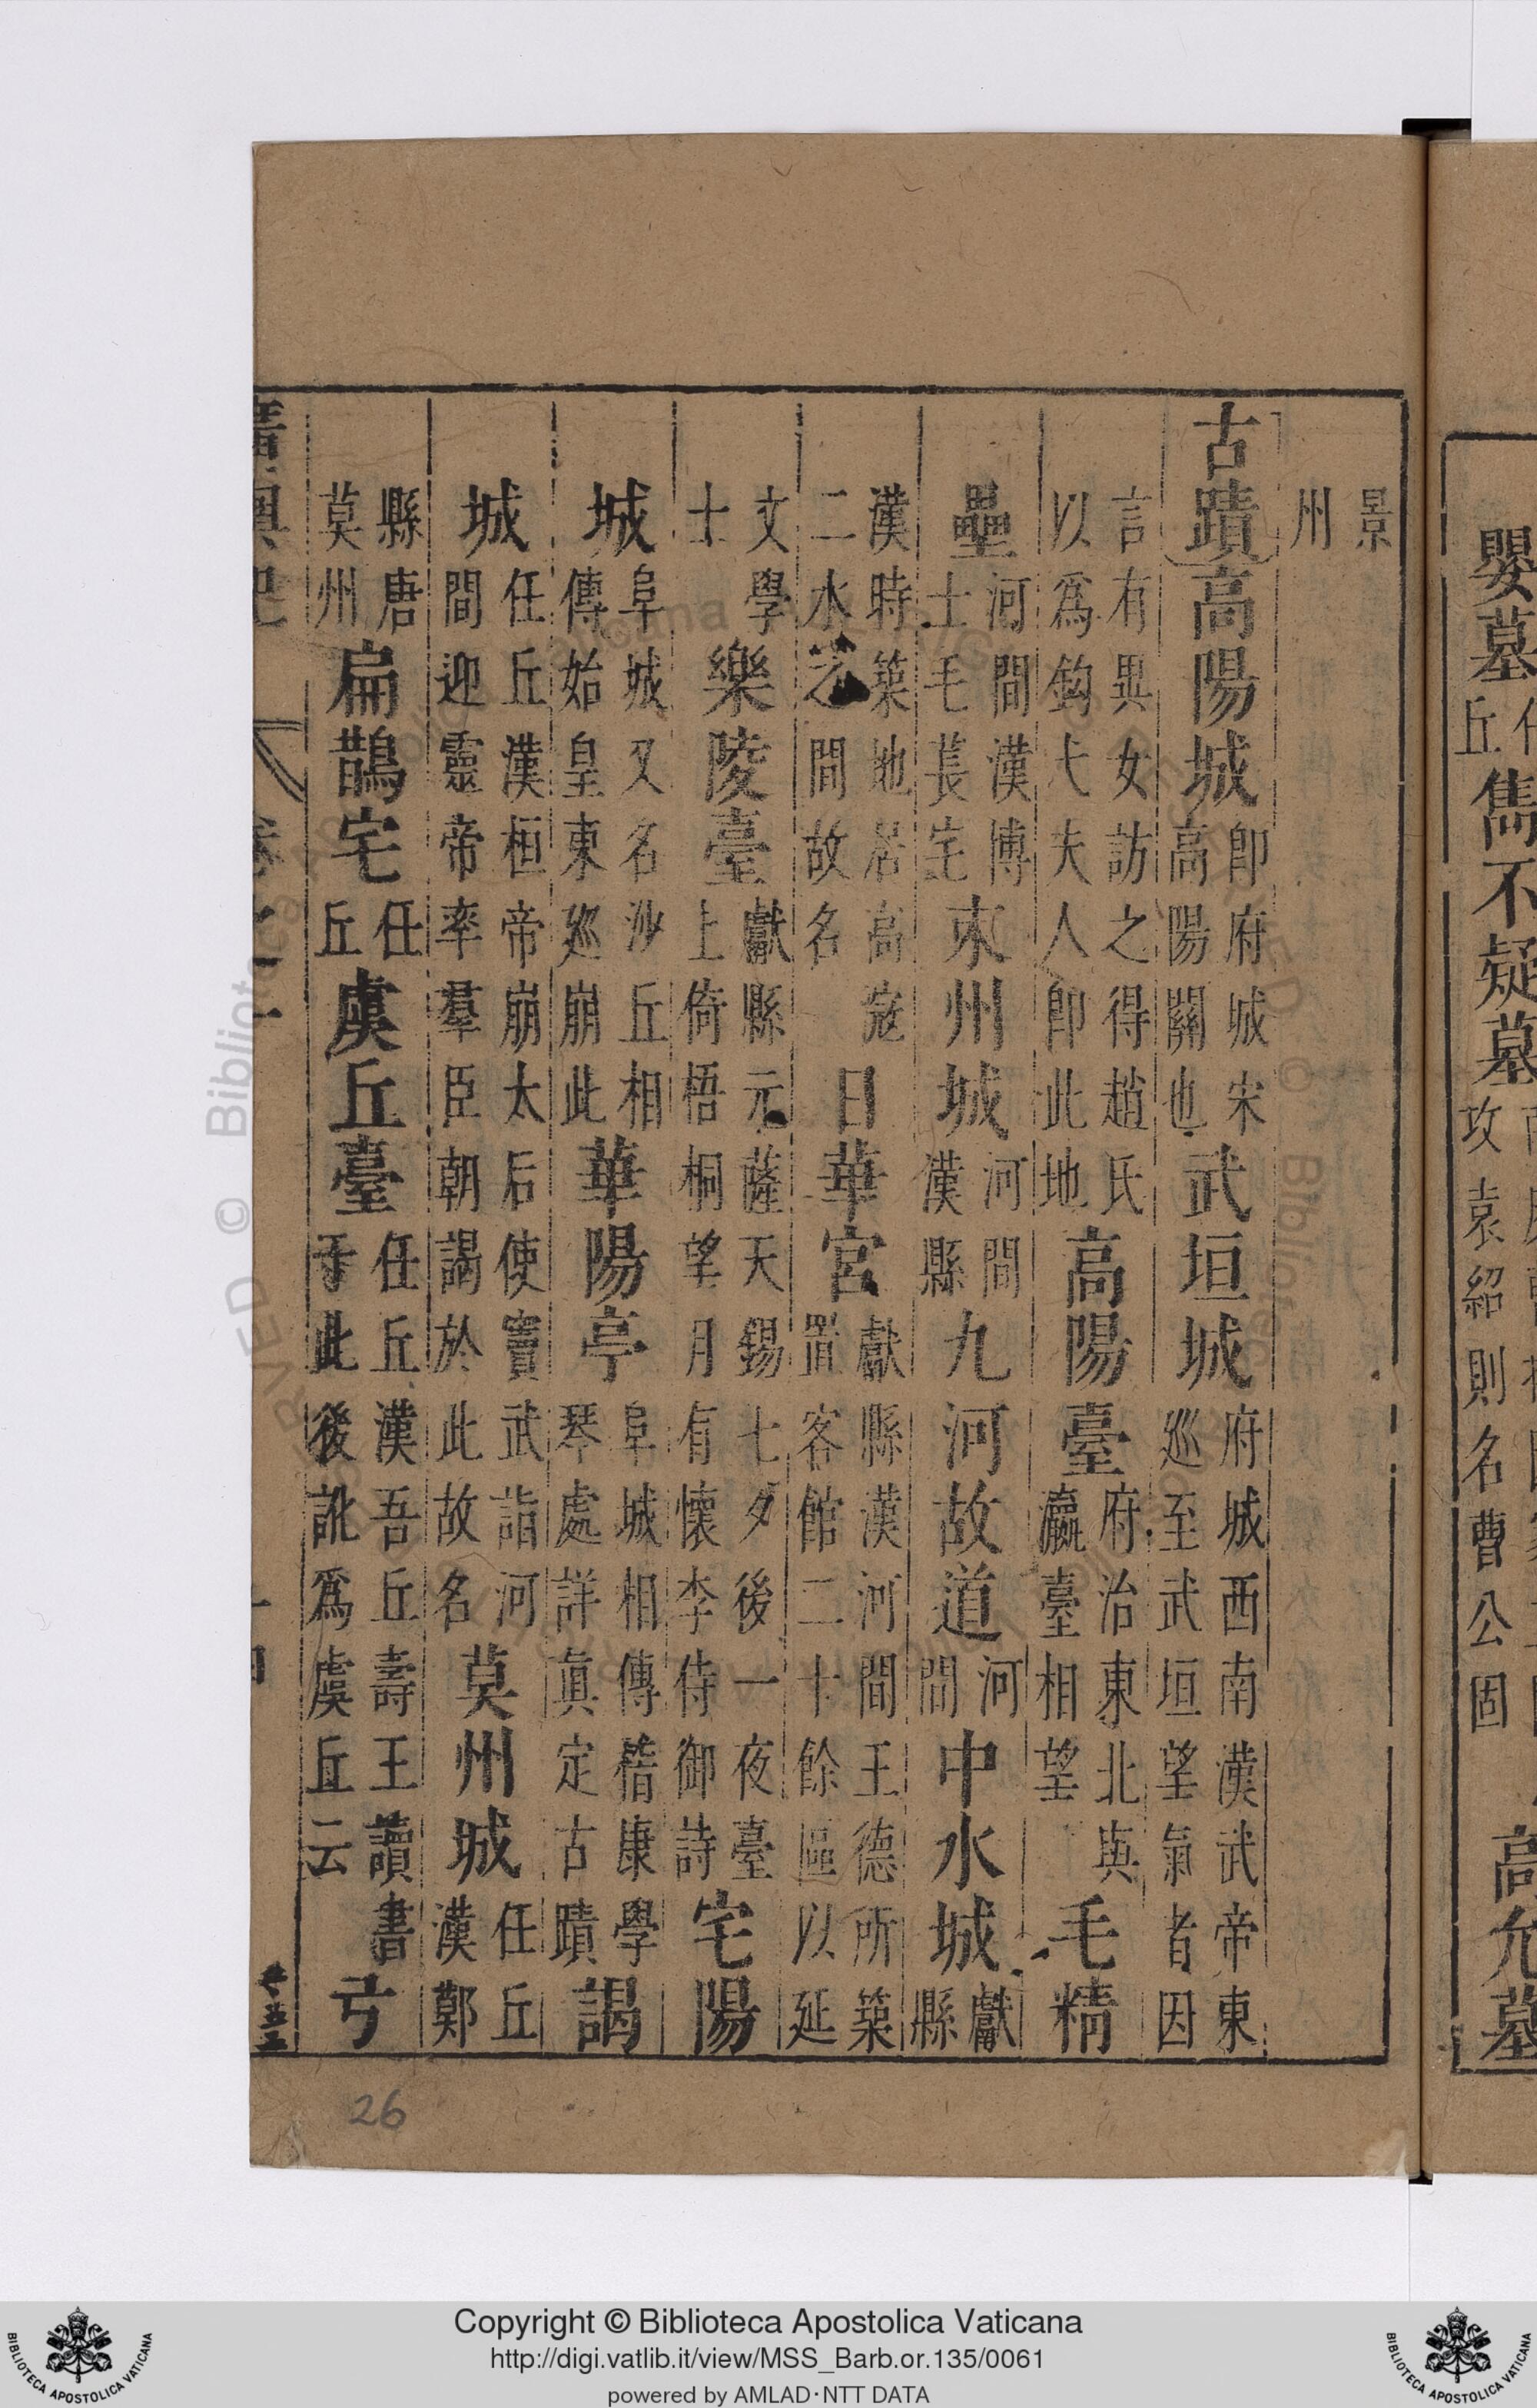 景州
古蹟高陽城即府城宋高陽關也武垣城府城西南漢武帝東巡至武垣望氣者因
言有異女訪之得趙氏以爲鈎弋夫人即此地高陽臺府治東北與瀛臺相望毛精
壘河間漢博士毛萇宅束州城河間漢縣九河故道河間中水城獻縣
漢時築地居高寇二水之間故名日華宮獻縣漢河間王德所築置客館二十餘區以延
文學士樂陵臺獻縣元薩天錫七夕後一夜臺上倚梧桐望月有懷李侍御詩宅陽
城阜城又名沙丘相傳始皇東廵崩此華陽亭阜城相傳嵇康學琴處詳真定古蹟謁
城任丘漢桓帝崩太后使竇武詣河間迎靈帝率羣臣朝謁於此故名莫州城任丘漢鄚
縣唐莫州扁鵲宅任丘虞丘臺任丘漢吾丘壽王讀書于此後訛爲虞丘云弓
廣輿記
卷之一
嬰墓
丘
雋不疑墓
攻袁紹則名曹公固
高允墓
26
Copyright © Biblioteca Apostolica Vaticana
http://digi.vatlib.it/view/MSS_Barb.or.135/0061
powered by AMLAD·NTT DATA
BIBLIOTECA APOSTOLICA VATICANA
BIBLIOTECA APOSTOLICA VATICANA